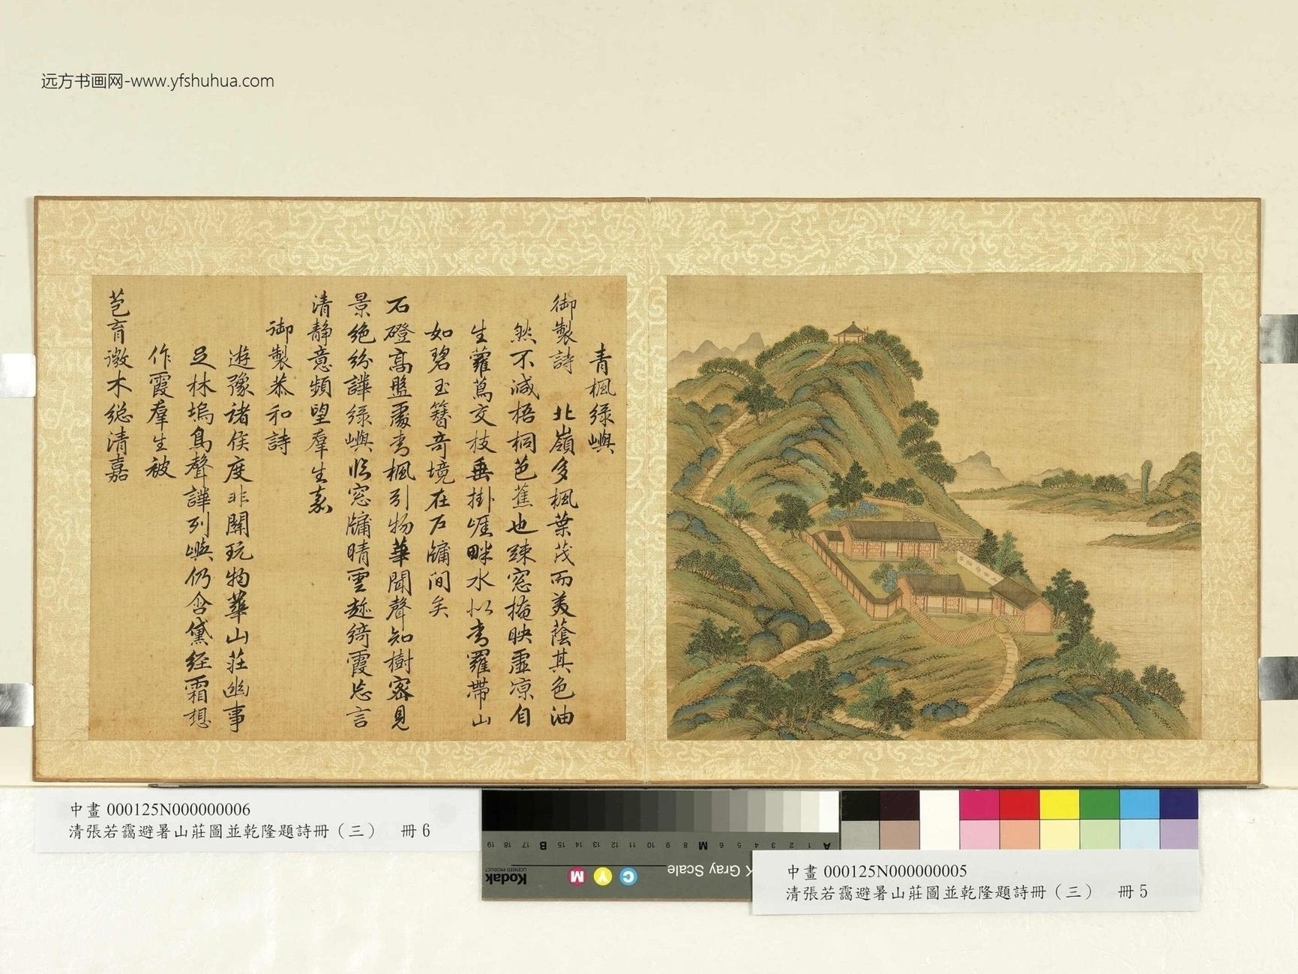 远方书画网-www.yfshuhua.com
青楓綠嶼
御製詩 北嶺多楓葉茂而美蔭其色油
然不減梧桐芭蕉也疎窓掩映虛凉自
生蘿蔦交枝垂掛崖畔水似青羅帶山
如碧玉簪奇境在戶牖間矣
石磴高盤處青楓引物華聞聲知樹密見
景絕紛譁綠嶼臨窓牖晴雲趁綺霞忘言
清靜意頻望群生嘉
御製恭和詩
遊豫諸侯度非關玩物華山莊幽事
足林塢鳥聲譁列嶼仍含黛經霜想
作霞羣生被
芭育微木總清嘉
中畫 000125N000000006
清張若靄避暑山莊圖並乾隆題詩冊（三） 冊 6
19 18 17 B 16 15 14 13 12 11 10 9 8 M 7 6 5 4 3 2 1 A
Kodak
LICENSED PRODUCT
M Y C
K Gray Scale
中畫 000125N000000005
清張若靄避暑山莊圖並乾隆題詩冊（三） 冊 5